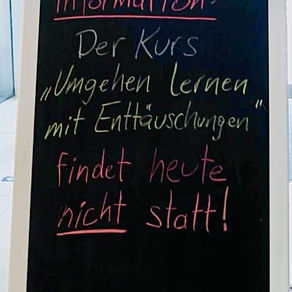 Information:
Der Kurs
„Umgehen lernen
mit Enttäuschungen"
findet heute
nicht statt!